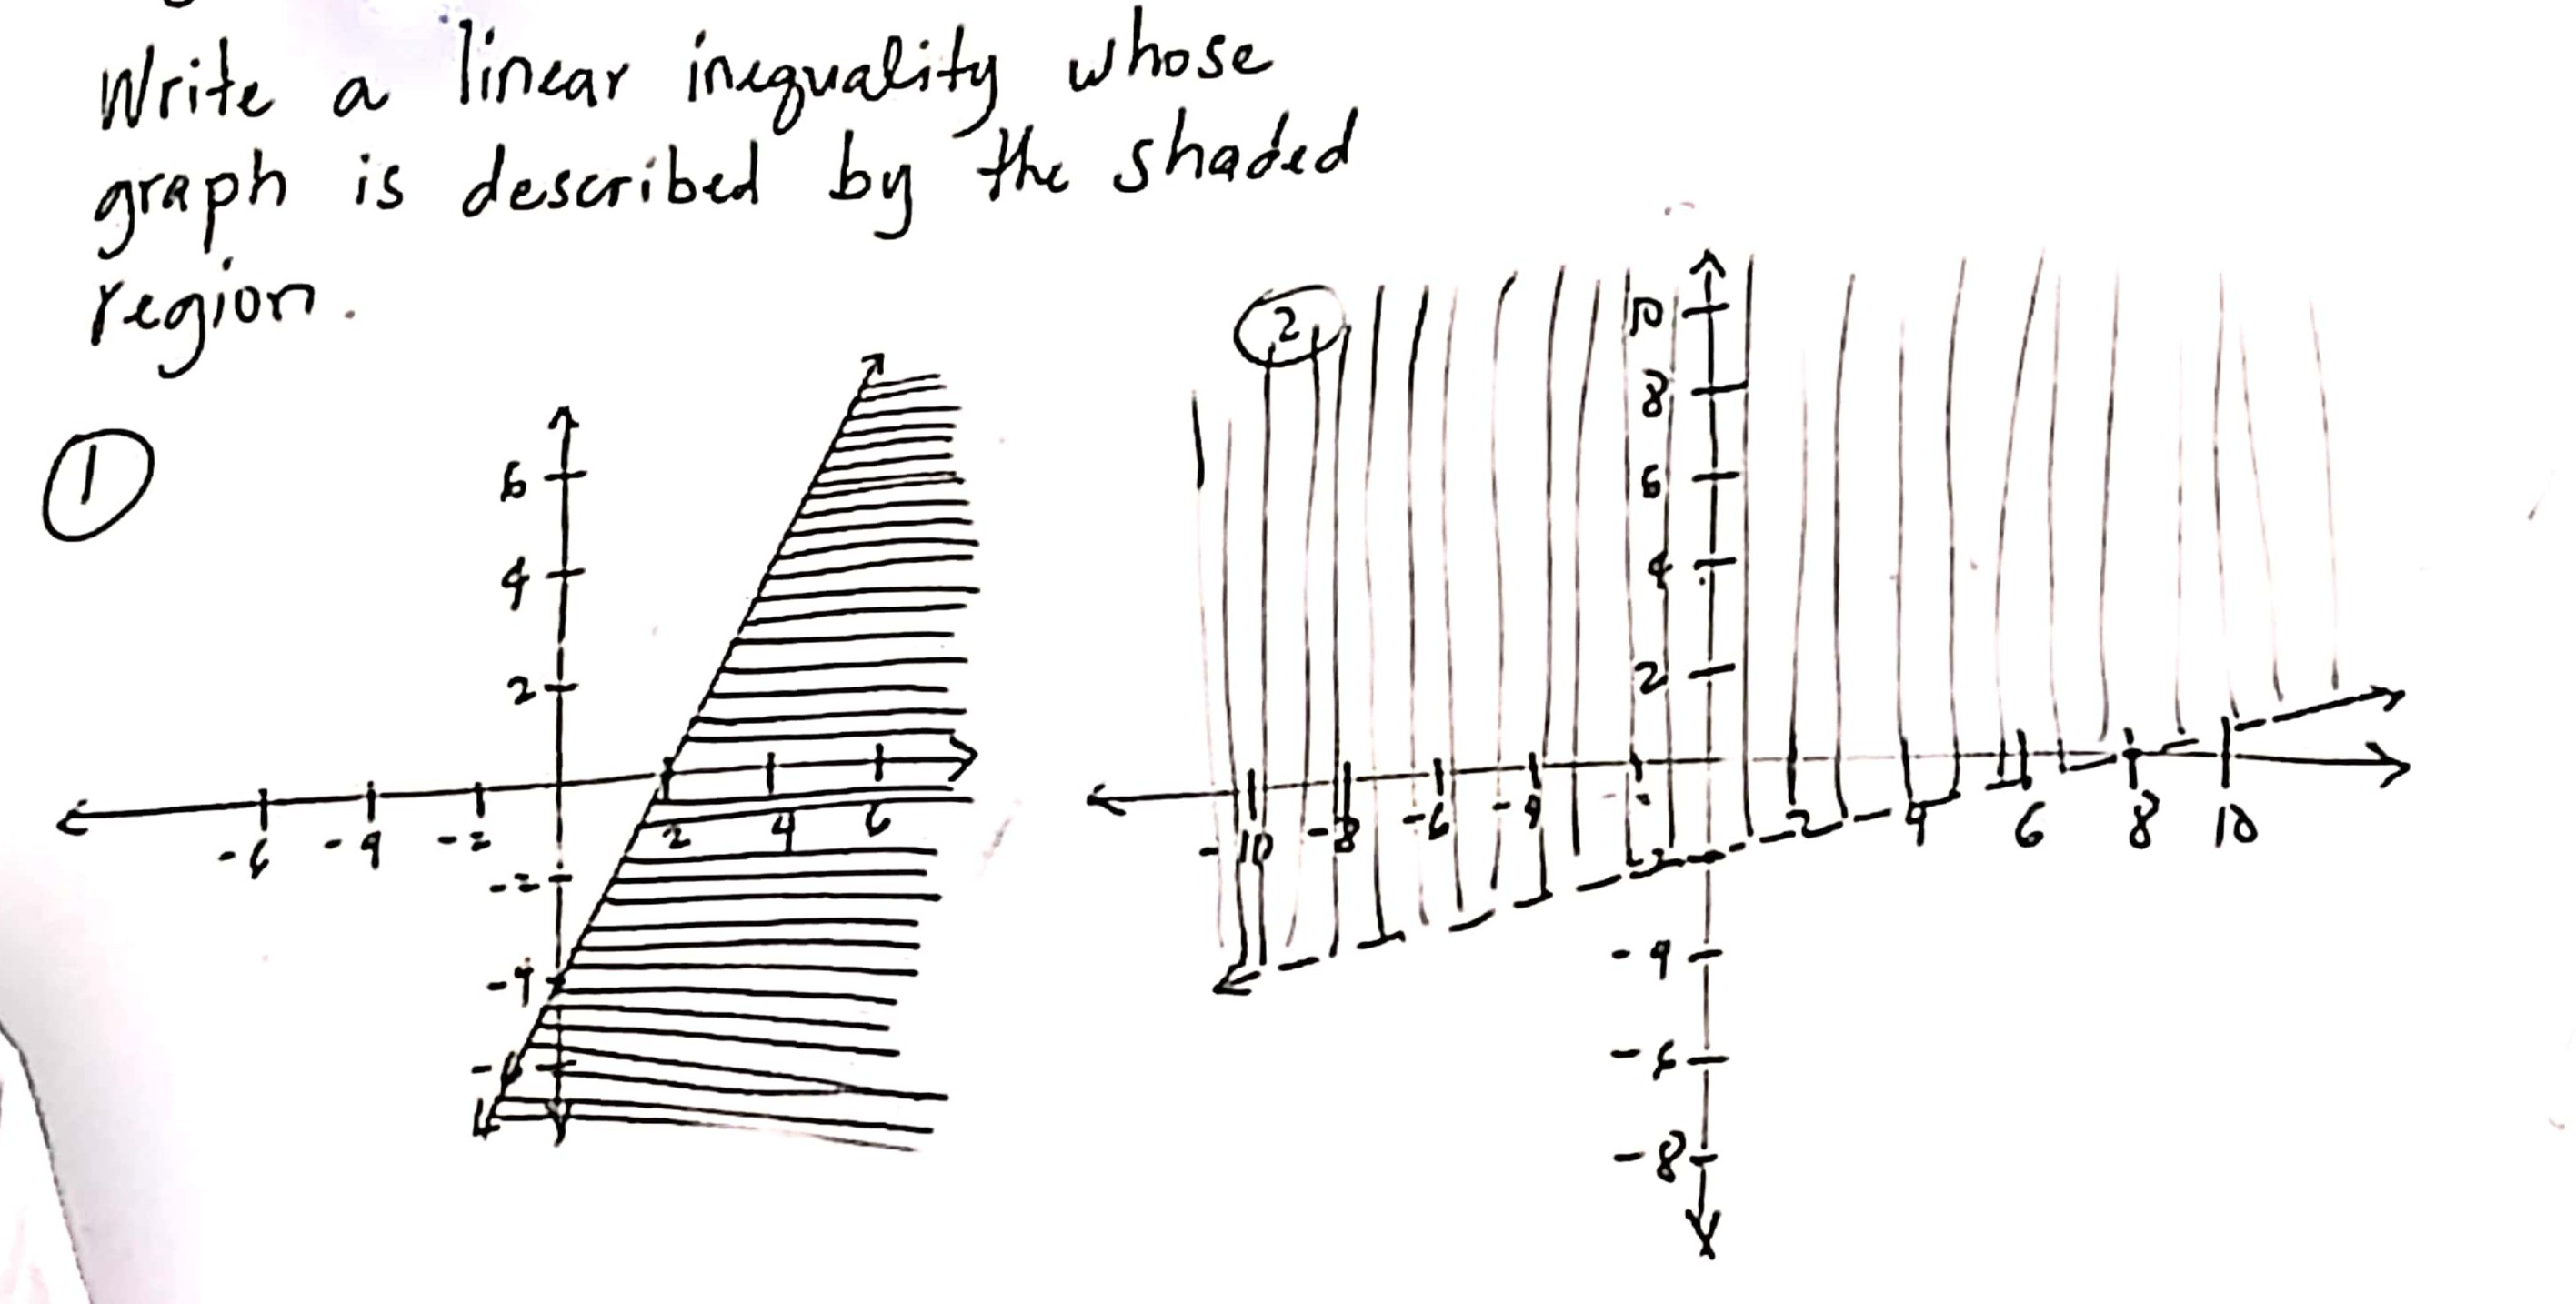 Write a linear inequality whose
graph is described by the shaded
region.
①
6
4
2
-6 -4 -2 2 4 6
-2
-4
-6
②
10
8
6
4
2
-10 -8 -6 -4 2 4 6 8 10
-2
-4
-6
-8